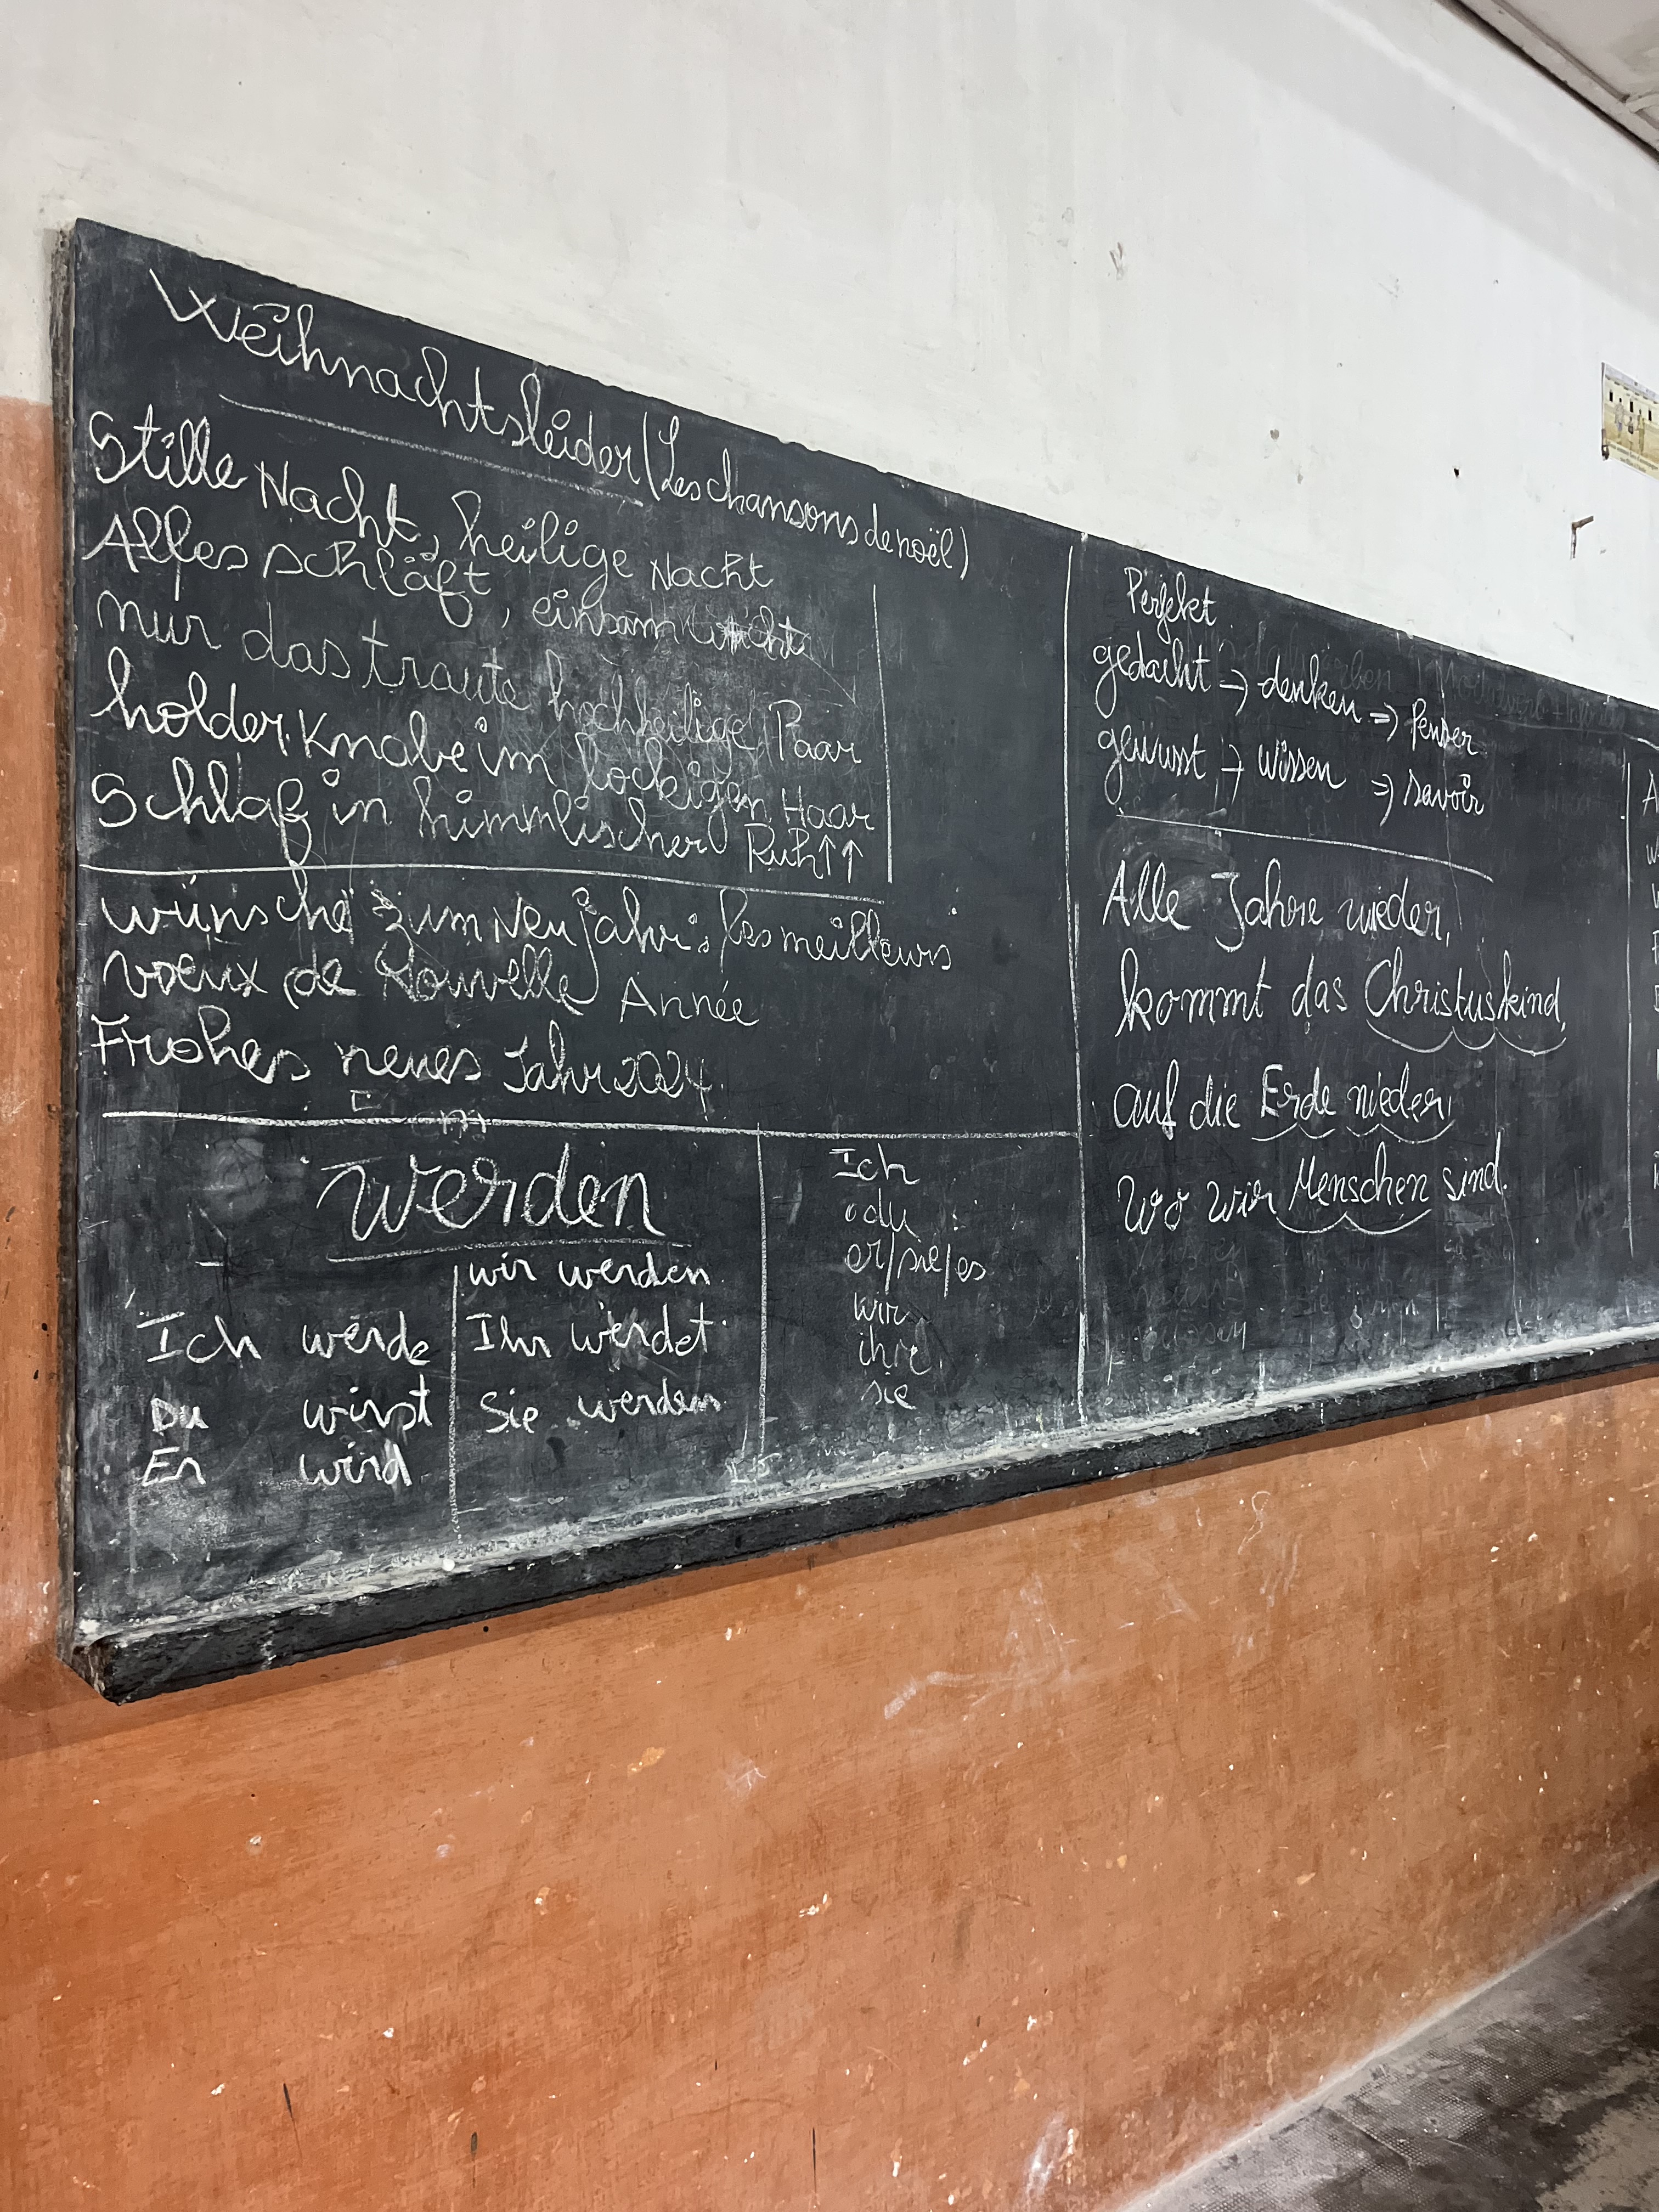 Weihnachtsleider (Les chansons de noël)
Stille Nacht, heilige Nacht
Alles schläft, einsam wacht
nur das traute hochheilige Paar
holder Knabe im lockigen Haar
Schlaf in himmlischer Ruh ↑↑
wünsche zum Neujahr: les meilleurs
voeux de Nouvelle Année
Frohes neues Jahr 2024.
werden
Ich werde
Du wirst
Er wird
wir werden
Ihr werdet
Sie werden
Ich
du
er/sie/es
wir
ihr
sie
Perfekt
gedacht → denken ⇒ Penser
gewusst → wissen ⇒ savoir
Alle Jahre wieder,
kommt das Christuskind,
auf die Erde nieder,
wo wir Menschen sind.